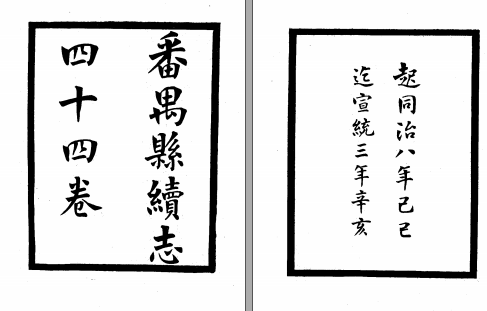 番禺縣續志
四十四卷
起同治八年己巳
迄宣統三年辛亥